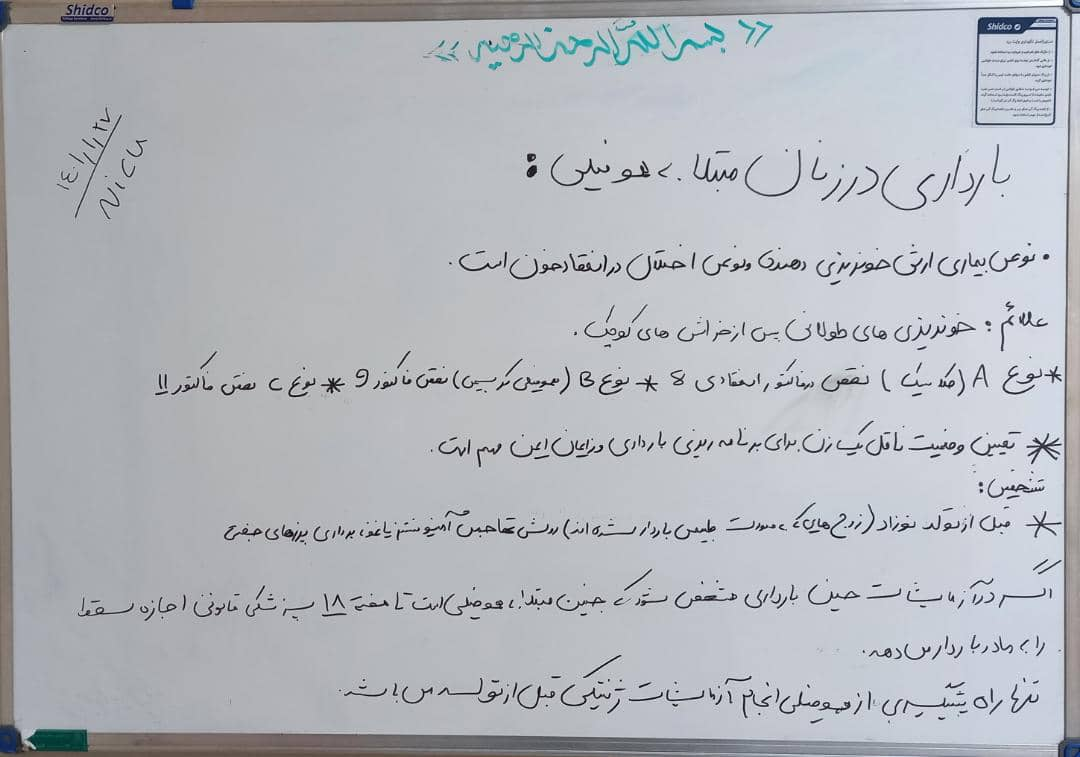 Shidco
Shidco
« بسم الله الرحمن الرحیم »
۱۴۰۱/۱/۲۷
NICU
بارداری در زنان مبتلا به هموفیلی :
• نوعی بیماری ارثی خونریزی دهنده و نوعی اختلال در انعقاد خون است.
علائم : خونریزی های طولانی پس از خراش های کوچک.
* نوع A (کلاسیک) نقص در فاکتور انعقادی 8 * نوع B (هموفیلی کریسمس) نقص فاکتور 9 * نوع C نقص فاکتور 11
* تعیین وضعیت ناقل یک زن برای برنامه ریزی بارداری و زایمان ایمن مهم است.
تشخیص :
* قبل از تولد نوزاد (زوج هایی که به صورت طبیعی باردار شده اند) روش تهاجمی آمنیوسنتز یا نمونه برداری پرزهای جفتی
اگر در آزمایشات حین بارداری مشخص شود که جنین مبتلا به هموفیلی است تا هفته ۱۸ پزشکی قانونی اجازه سقط
را به مادر باردار می دهد.
تنها راه پیشگیری از هموفیلی انجام آزمایشات ژنتیکی قبل از تولد می باشد.